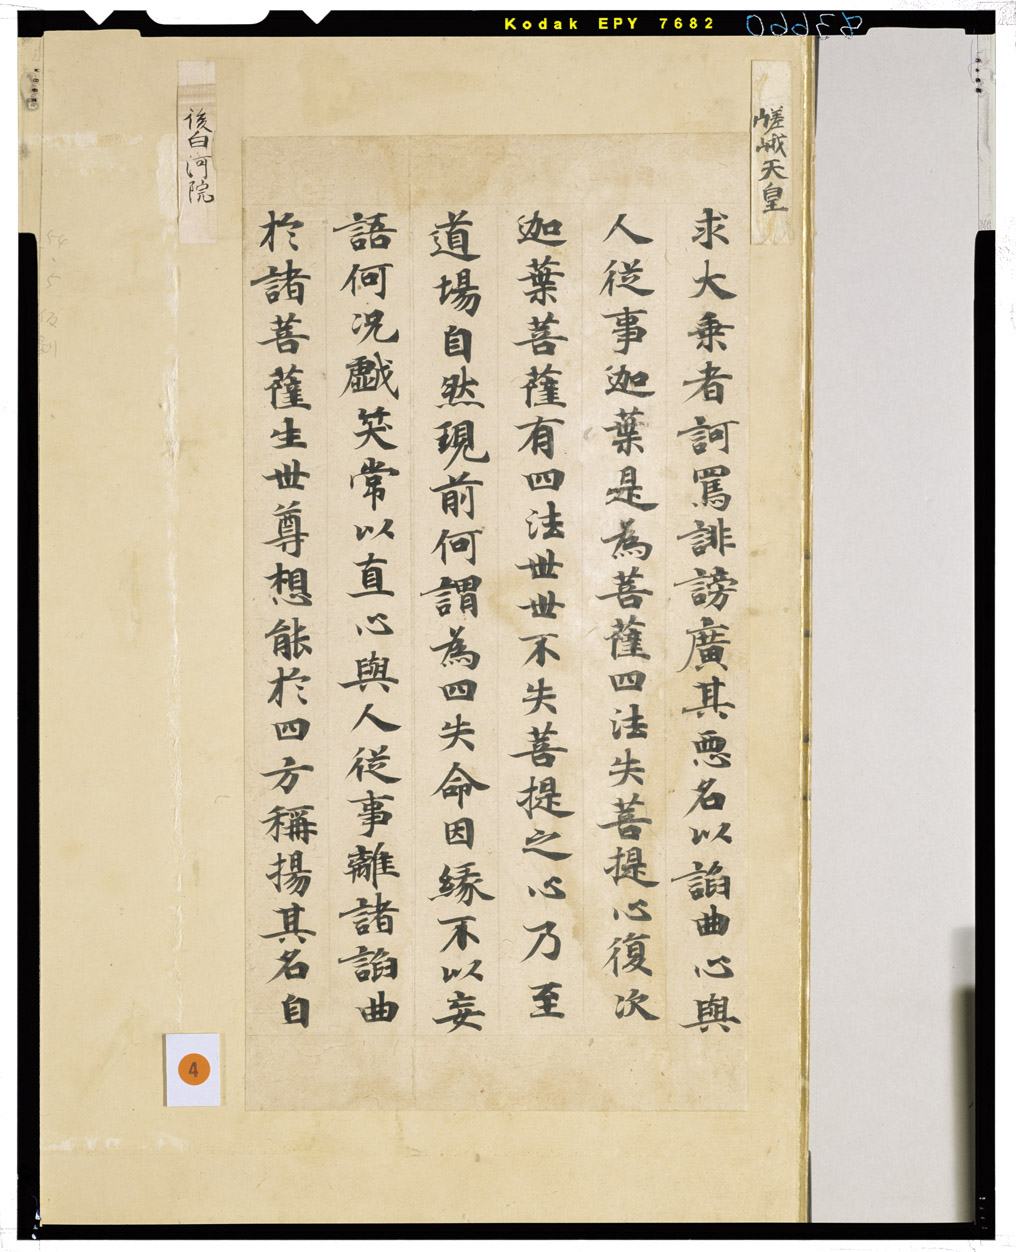 Kodak EPY 7682
93660
嵯峨天皇
求大乗者訶罵誹謗廣其惡名以諂曲心與
人従事迦葉是為菩薩四法失菩提心復次
迦葉菩薩有四法世世不失菩提之心乃至
道場自然現前何謂為四失命因縁不以妄
語何況戯笑常以直心與人従事離諸諂曲
於諸菩薩生世尊想能於四方稱揚其名自
後白河院
4